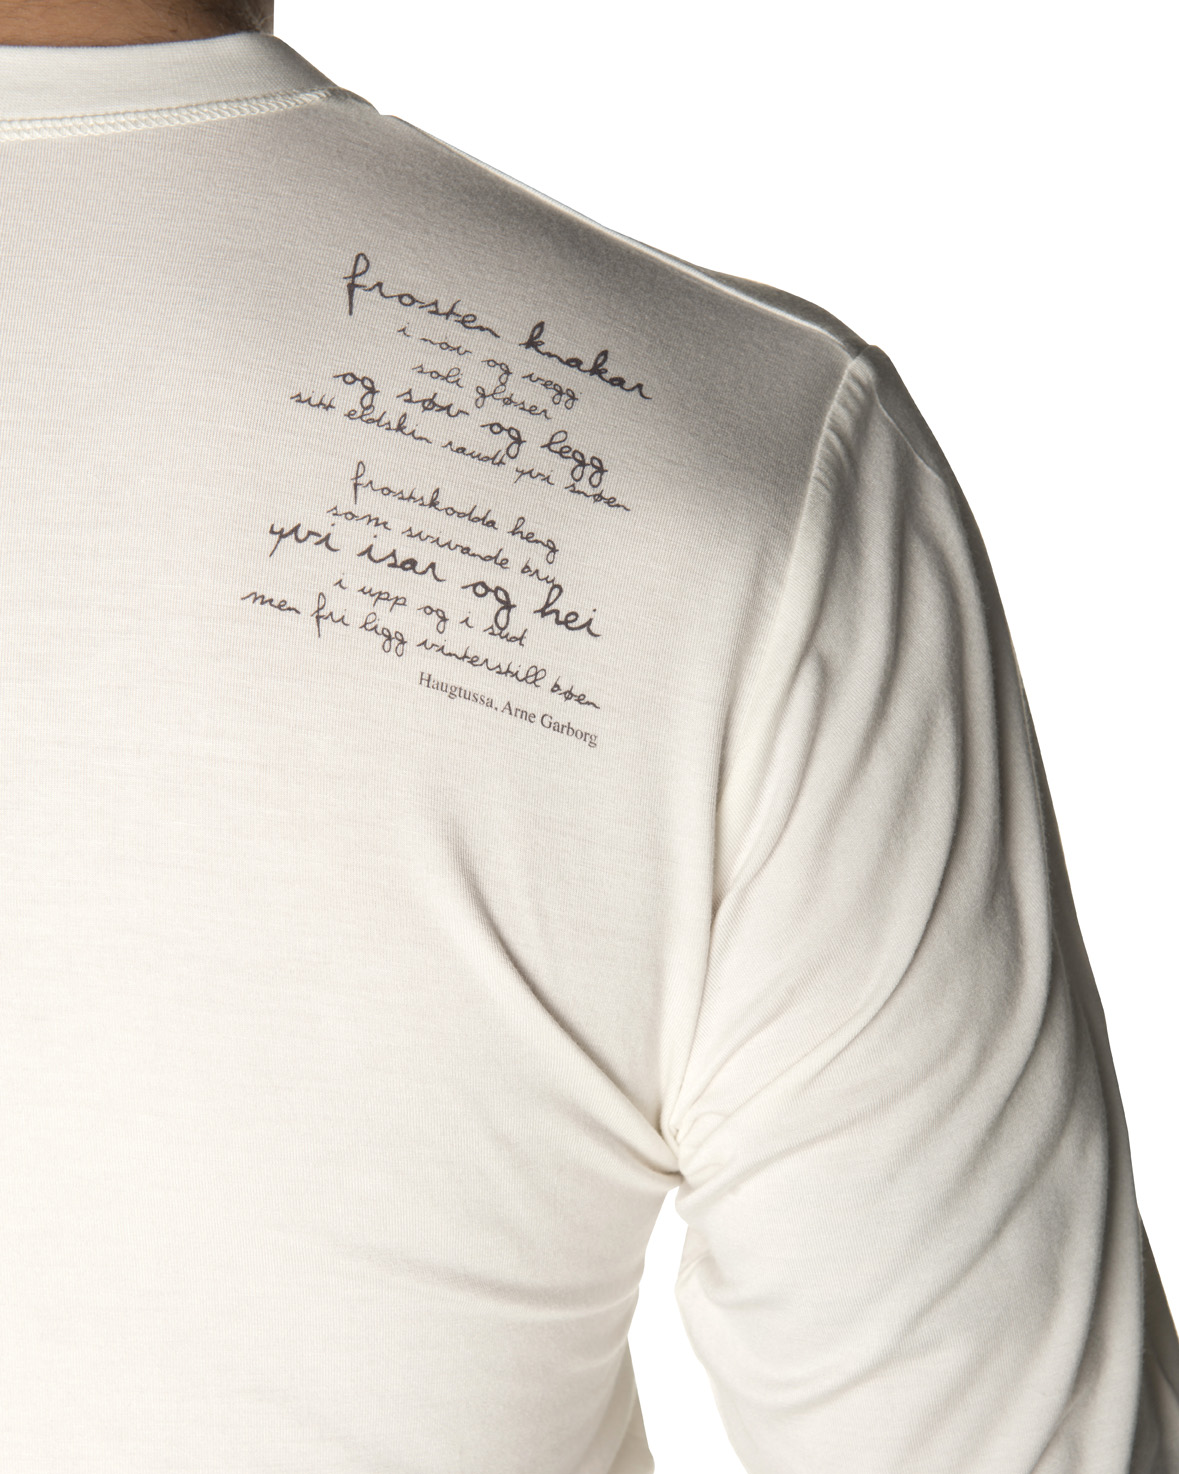 frosten knakar
i nov og vegg
soli gløser
og søv og legg
sitt eldskin raudt yvi snøen
frostskodda heng
som svivande bru
yvi isar og hei
i upp og i sud
men fri ligg vinterstill bøen
Haugtussa, Arne Garborg